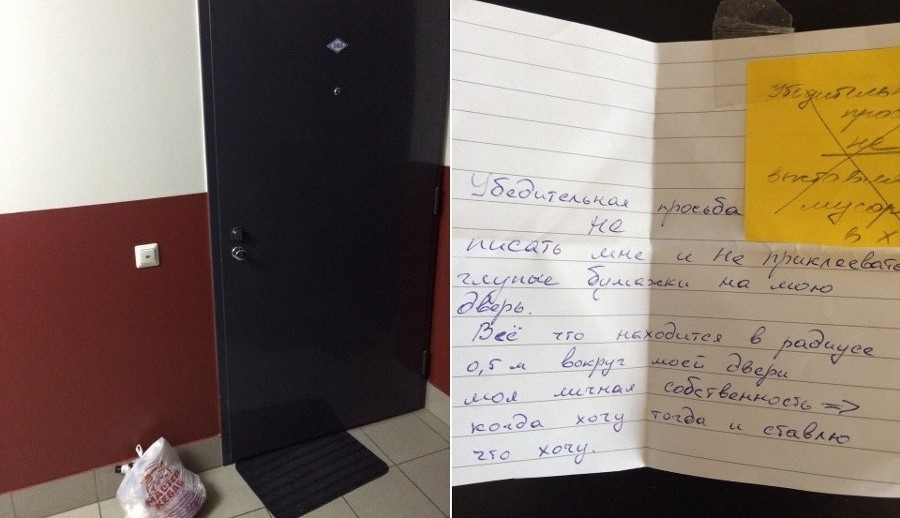 Убедительн
прос
не
выставля
мусор
в х
Убедительная просьба
НЕ
писать мне и не приклеевать
глупые бумажки на мою
дверь.
Всё что находится в радиусе
0,5 м вокруг моей двери
моя личная собственность =>
когда хочу тогда и ставлю
что хочу.